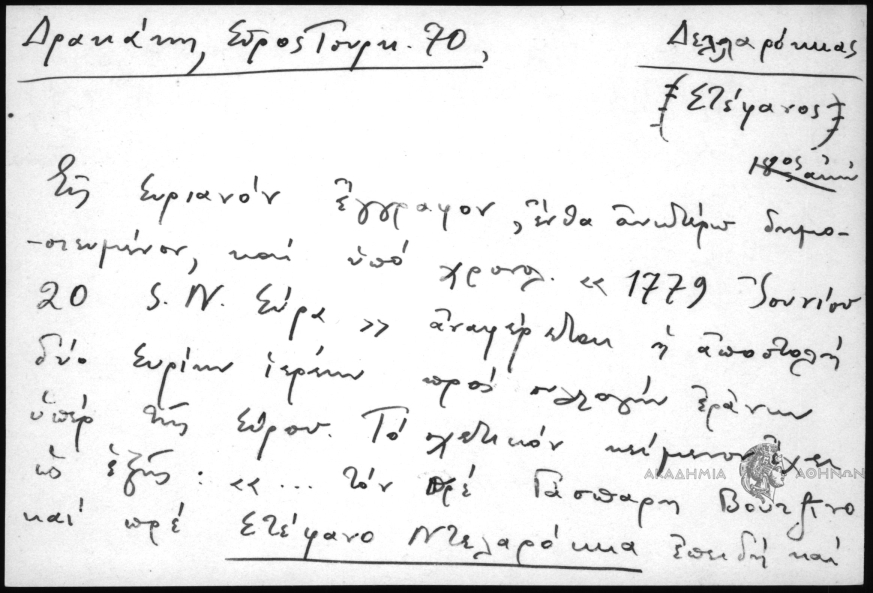 Δρακάκη, Σῦρος Τουρκ. 70,
Δελλαρόκκας
(Στέφανος)
18ος αἰών
Εἰς Συριανόν ἔγγραφον, ἔνθα ἀνωτέρω δημο-
-σιευμένον, καί ὑπό χρονολ. « 1779 Ἰουνίου
20 S. N. Σύρα » ἀναφέρεται ἡ ἀποστολή
δύο Συρίων ἱερέων πρός συλλογήν ἐράνων
ὑπέρ τῆς Σύρου. Τό σχετικόν κείμενον ἔχει
ὡς ἑξῆς : « ... τόν πρέ Γάσπαρη Βουτζίνο
καί πρέ Στέφανο Ντελαρόκκα ἐπειδή καί
ΑΚΑΔΗΜΙΑ ΑΘΗΝΩΝ